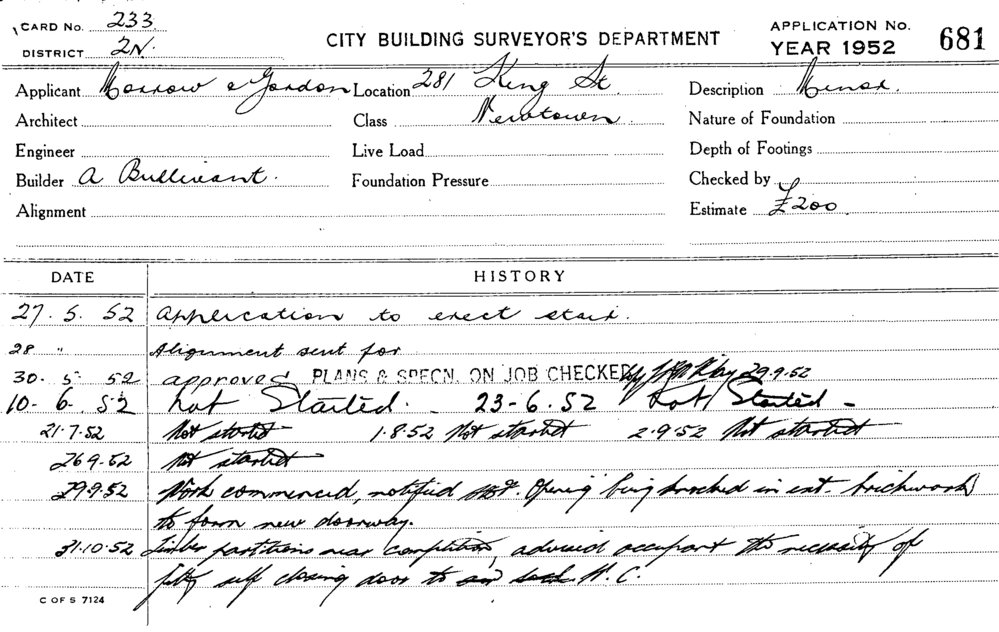 CARD NO. 233
DISTRICT 2N.
CITY BUILDING SURVEYOR'S DEPARTMENT
APPLICATION NO.
YEAR 1952
681
Applicant Morrow & Gordon Location 281 King St. Description Minor.
Architect Class Newtown. Nature of Foundation
Engineer Live Load Depth of Footings
Builder A Bullivant. Foundation Pressure Checked by
Alignment Estimate £200.
DATE HISTORY
27. 5. 52 Application to erect stair.
28 " Alignment sent for
30. 5 52 approved PLANS & SPECN. ON JOB CHECKED 29.9.52
10- 6. 52 Not Started. - 23-6.52 Not Started -
21.7.52 Not started 1.8.52 Not started 2.9.52 Not started
26.9.52 Not started
29.9.52 Work commenced, notified Opening being knocked in ext. brickwork
to form new doorway.
31.10.52 Timber partitions near completion, advised occupant the necessity of
self closing door to W.C.
C OF S 7124